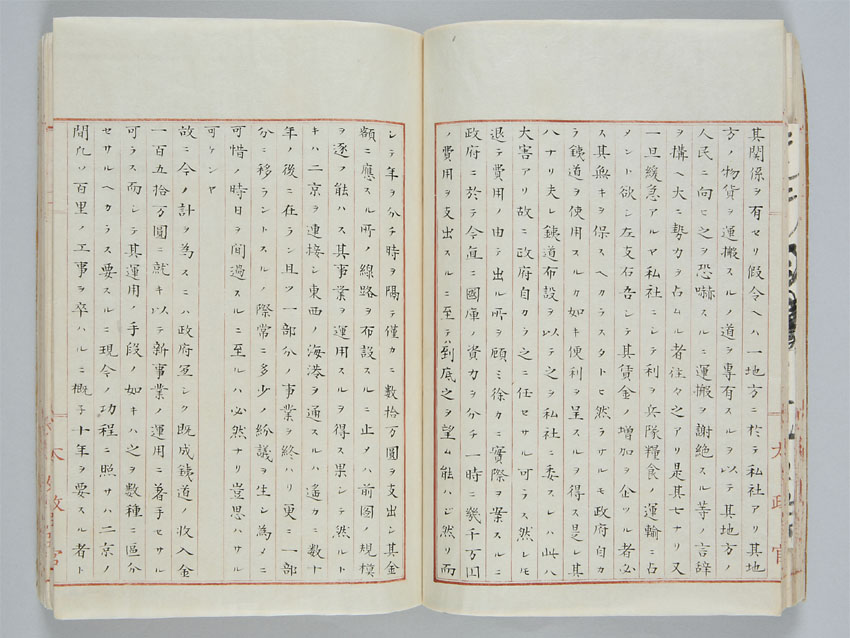 其関係ヲ有セリ假令ヘハ一地方ニ於テ私社アリ其地
方ノ物貨ヲ運搬スルノ道ヲ專有スルヲ以テ其地方ノ
人民ニ向ヒ之ヲ恐嚇スルニ運搬ヲ謝絶スル等ノ言辞
ヲ搆ヘ大ニ勢力ヲ占ムル者徃々之アリ是其七ナリ又
一旦緩急アルヤ私社ニシテ利ヲ兵隊糧食ノ運輸ニ占
メント欲シ左支右吾シテ其賃金ノ増加ヲ企ツル者必
ス其無キヲ保スヘカラスタトヒ然ラサルモ政府自カ
ラ鉄道ヲ使用スルカ如キ便利ヲ呈スルヲ得ス是レ其
八ナリ夫レ鉄道布設ヲ以テ之ヲ私社ニ委スレハ此八
大害アリ故ニ政府自カラ之ニ任セサル可ラス然レモ
退テ費用ノ由テ出ル所ヲ顧ミ徐カニ實際ヲ案スルニ
政府ニ於テ今直ニ國庫ノ資力ヲ分チ一時ニ幾千万円
ノ費用ヲ支出スルニ至テハ到底之ヲ望ム能ハス然リ而
シテ年ヲ分チ時ヲ隔テ僅カニ数拾万圓ヲ支出シ其金
額ニ應スル所ノ線路ヲ布設スルニ止メハ前図ノ規模
ヲ逐フ能ハス其事業ヲ運用スルヲ得ス果シテ然ルト
キハ二京ヲ連接シ東西ノ海港ヲ通スルハ遙カニ数十
年ノ後ニ在ラン且ツ一部分ノ事業ヲ終ハリ更ニ一部
分ニ移ラントスルノ際常ニ多少ノ紛議ヲ生シ為メニ
可惜ノ時日ヲ間過スルニ至ルハ必然ナリ豈思ハサル
可ケンヤ
故ニ今ノ計ヲ為スニハ政府宜シク既成鉄道ノ収入金
一百五拾万圓ニ就キ以テ新事業ノ運用ニ著手セサル
可ラス而シテ其運用ノ手段ノ如キハ之ヲ数種ニ區分
セサルヘカラス要スルニ現今ノ功程ニ照サハ二京ノ
間凡ソ百里ノ工事ヲ卒ハルニ概子十年ヲ要スル者ト
太政官